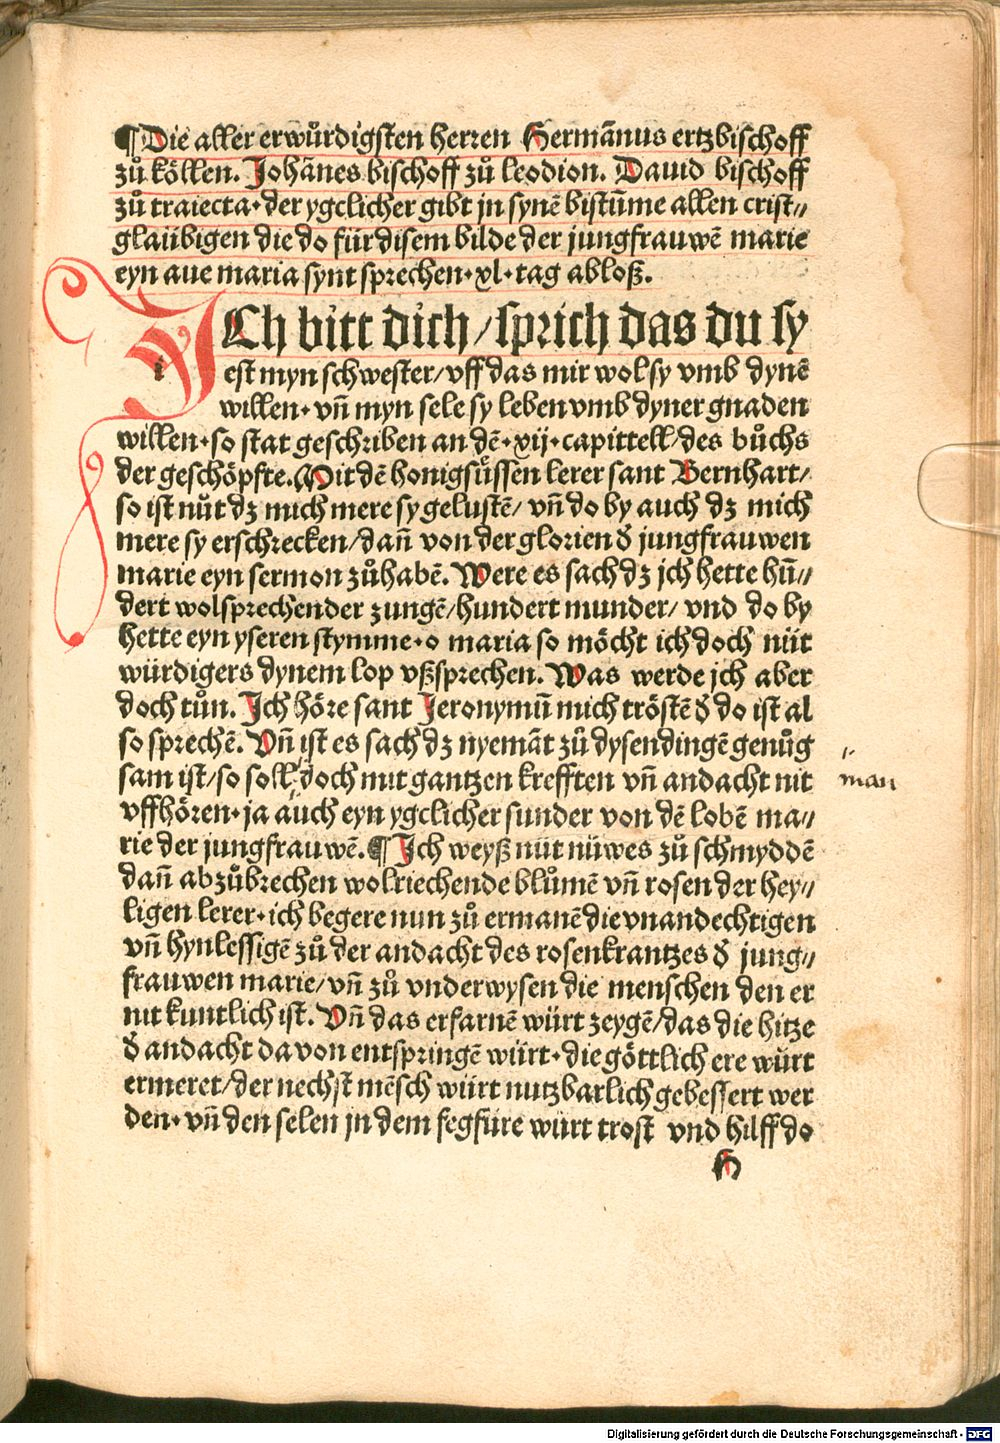 ¶Die aller erwůrdigsten herren Hermãnus ertzbischoff
zů köllen. Johãnes bischoff zů leodion. Dauid bischoff
zů traiecta· der ygclicher gibt jn synē bistūme allen crist⸗
glaübigen die do für disem bilde der jungfrauwē marie
eyn aue maria synt sprechen· xl· tag abloß.
ICh bitt dich/ sprich das du sy
i
est myn schwester/ vff das mir wol sy vmb dynē
willen· vñ myn sele sy leben vmb dyner gnaden
willen· so stat geschriben an dē· xij· capittell/ des bůchs
der geschöpfte. Mit dē honigsůssen lerer sant Bernhart/
so ist nůt dz mich mere sy gelustē/ vñ do by auch dz mich
mere sy erschrecken/ dañ von der glorien d̕ jungfrauwen
marie eyn sermon zůhabē. Were es sach dz jch hette hū⸗
dert wolsprechender zungē/ hundert munder/ vnd do by
hette eyn yseren stymme· o maria so möcht ich doch nüt
würdigers dynem lop vßsprechen. Was werde jch aber
doch tůn. Jch höre sant Jeronymū mich tröstē d̕ do ist al
so sprechē. Vñ ist es sach dz nyemāt zů dysen dingē genůg
sam ist/ so soll doch mit gantzen krefften vñ andacht nit
man
vffhören· ja auch eyn ygclicher sunder von dē lobē ma⸗
rie der jungfrauwē. ¶ Jch weyß nüt nüwes zů schmyddē
dañ abzůbrechen wolriechende blůmē vñ rosen der hey⸗
ligen lerer· ich begere nun zů ermanē die vnandechtigen
vñ hynlessigē zů der andacht des rosenkrantzes d̕ jung⸗
frauwen marie/ vñ zů vnderwysen die menschen den er
nit kuntlich ist. Vñ das erfarnē würt zeygē/ das die hitze
d̕ andacht da von entspringē würt· die göttlich ere würt
ermeret/ der nechst mēsch würt nutzbarlich gebessert wer
den· vñ den selen jn dem fegfüre würt trost vnd hilff do
H
Digitalisierung gefördert durch die Deutsche Forschungsgemeinschaft - DFG